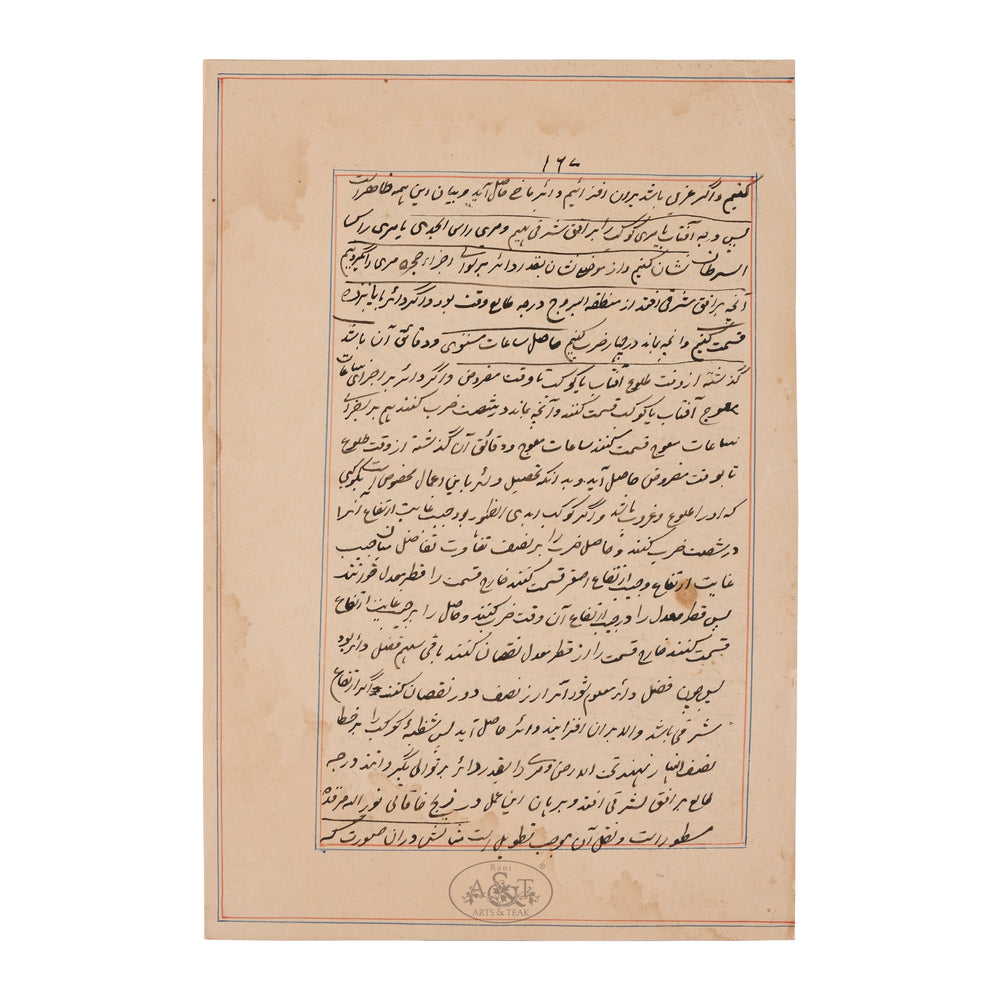 ۱۶۷
کنیم و اگر غربی باشد بران افزائیم دائر باضی حاصل آید و بیان این همه ظاهر است
پس درجه آفتاب یا مری کوکب را بر افق شرقی نهیم و مری راس الجدی یا مری راس
السرطان نشان کنیم و از موضع نشان بقدر دائر بر توالی اجزاء حجره مری را بگردانیم
آنچه بر افق شرقی افتد از منطقة البروج درجه طالع وقت بود و اگر دائر با پانزده
قسمت کنیم و آنچه بماند در چهار ضرب کنیم حاصل ساعات مستوی و دقائق آن باشد
گذشته از وقت طلوع آفتاب یا کوکب تا وقت مفروض و اگر دائر بر اجزای ساعات
معوج آفتاب یا کوکب قسمت کنند و آنچه بماند در شصت ضرب کنند هم بر اجزای
ساعات معوج قسمت کنند ساعات معوج و دقائق آن گذشته از وقت طلوع
تا بوقت مفروض حاصل آید و بدانکه تحصیل دائر باین اعمال مخصوص است بکوکبی
که اورا طلوع و غروب باشد و اگر کوکب ابدی الظهور بود جیب غایت ارتفاع آنرا
در شصت ضرب کنند و حاصل ضرب را بر نصف تفاوت تفاضل میان جیب
غایت ارتفاع و جیب ارتفاع اصغر قسمت کنند خارج قسمت را قطر معدل خوانند
پس قطر معدل را در جیب ارتفاع آن وقت ضرب کنند و حاصل را بر جیب غایت ارتفاع
قسمت کنند خارج قسمت را از قطر معدل نقصان کنند باقی سهم فضل دائر بود
پس چون فضل دائر معلوم شود آنرا از نصف دور نقصان کنند اگر ارتفاع
شرقی باشد والا بران افزایند دائر حاصل آید پس شظیهٔ کوکب را بر خط
نصف النهار نهند تحت الارض و مری را بقدر دائر بر توالی بگردانند درجه
طالع بر افق شرقی افتد و برهان این عمل در زیج خاقانی نور الله مرقده
مسطور است و نقل آن موجب تطویل است مثالش دران صورت که
Rani
A&T
ARTS & TEAK
®